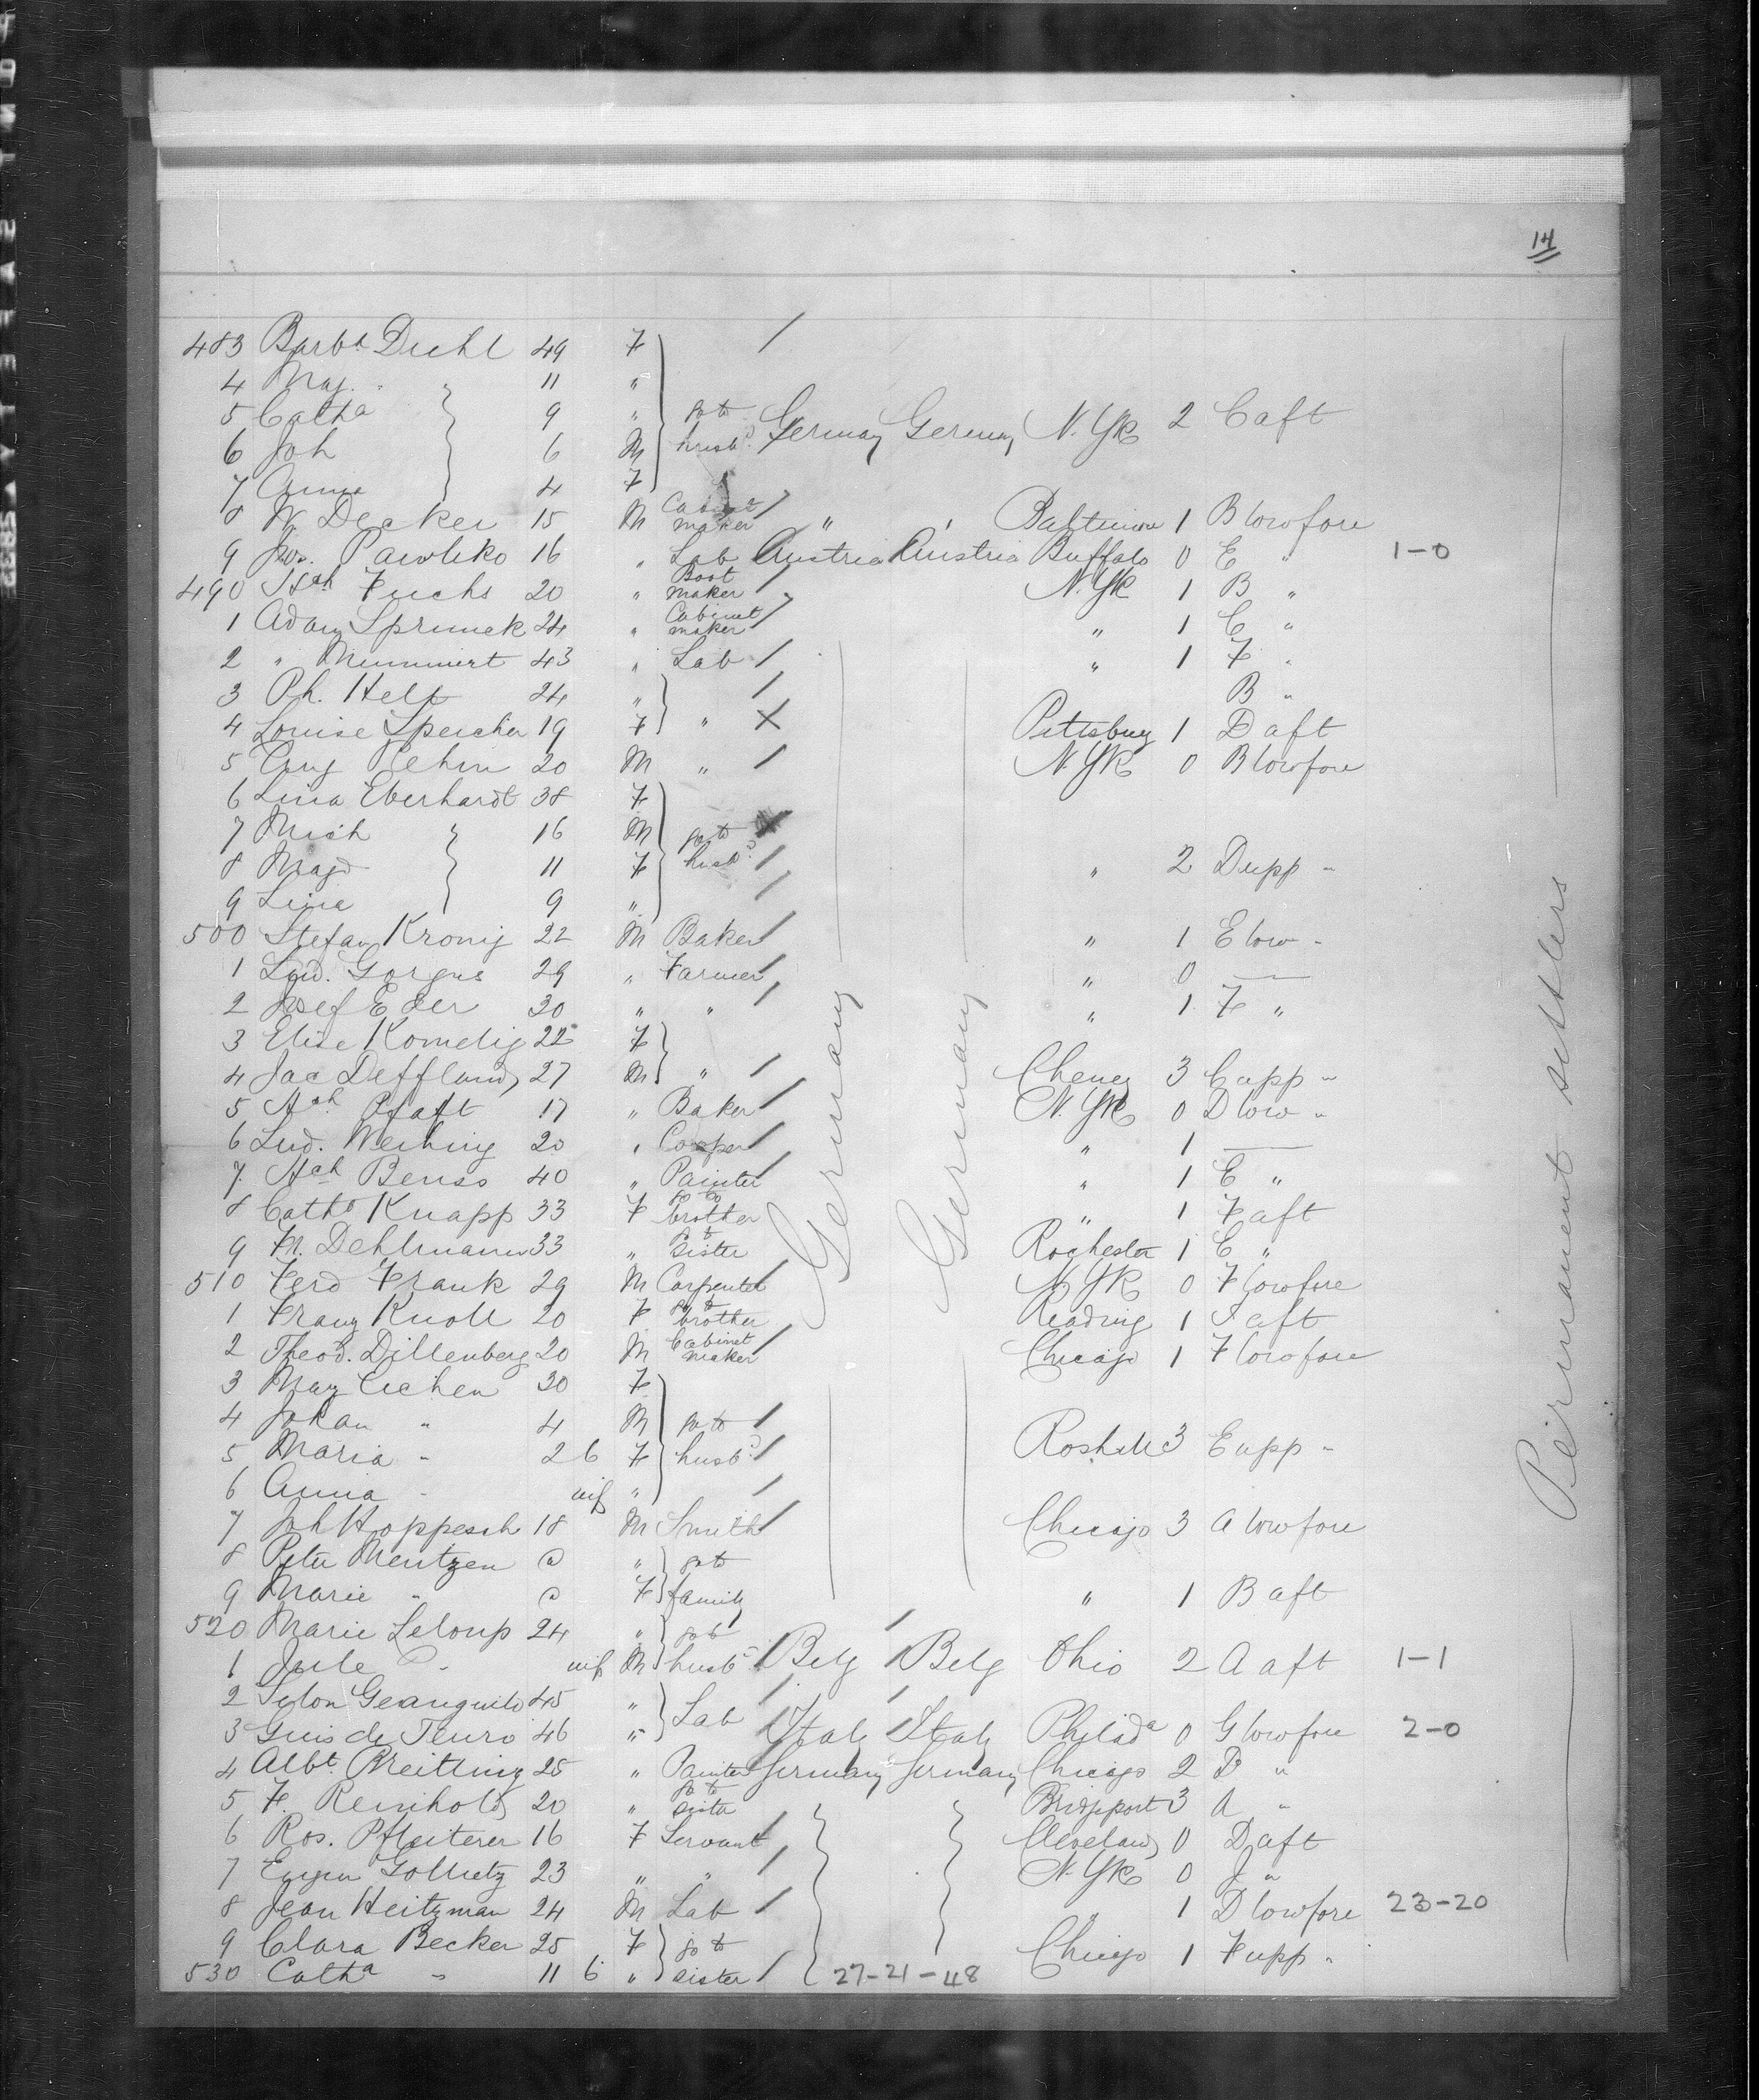 14
483 Barbª Diehl 49 F
4 Mag. " 11 "
5 Cathª 9 " go to Germany Germany N.Yk 2 C aft
6 Joh 6 M husbd
7 Anna 4 F
8 W. Decker 15 M Cabinet maker " " Baltimore 1 B lowfore
9 Jos. Pawliko 16 " Lab Austria Austria Buffalo 0 E " 1-0
490 Hch Fuchs 20 " Boot maker N.Yk 1 B "
1 Adam Sprunck 24 " Cabinet maker " 1 C "
2 " Mummert 43 " Lab " 1 F "
3 Ph. Helt 24 " B "
4 Louise Speicher 19 F " Pittsburg 1 D aft
5 Aug 20 M " N.Yk 0 B lowfore
6 Lina Eberhardt 38 F
7 Mich 16 M go to
8 Magd 11 F husbd " 2 D upp "
9 Lina 9 "
500 Stefan Kronig 22 M Baker " 1 E low "
1 Lud. Gorgus 29 " Farmer " 0 —
2 Josef Eder 30 " " " 1 F "
3 Elise Komelig 22 F
4 Jac Deffland 27 M " 3 C upp "
5 Hch Pfaft 17 " Baker N.Yk 0 D low "
6 Lud. Weihing 20 " Cooper " 1 —
7 Hch Benso 40 " Painter " 1 E "
8 Cathª Knapp 33 F go to brother " 1 F aft
9 Fr. Dehlmann 33 " go to sister Rochester 1 C "
510 Ferd Frank 29 M Carpenter N.Yk 0 F lowfore
1 Franz Knoll 20 F go to brother Reading 1 F aft
2 Theod. Dillenberg 20 M Cabinet maker Chicago 1 F lowfore
3 Mary Eichen 30 F
4 Johan " 4 M go to
5 Maria " 2 6 F husbd 3 E upp "
6 Anna " inf "
7 Joh Hoppesch 18 M Smith Chicago 3 A lowfore
8 Peter Mentzen @ " go to
9 Marie " @ F family " 1 B aft
520 Marie Leloup 24 " go to
1 Jule " inf M husbd Belg Belg Ohio 2 A aft 1-1
2 Geanquito 45 " Lab
3 Guis de Teuro 46 " Italy Italy Philadª 0 G lowfore 2-0
4 Albt. Breitling 25 " Painter Germany Germany Chicago 2 D "
5 F. Reinhold 20 " go to sister Bridgeport 3 A "
6 Ros. Pfleiterer 16 F Servant Cleveland 0 D aft
7 Eugen 23 " " N.Yk 0 J "
8 Jean Heitzman 24 M Lab " 1 D lowfore 23-20
9 Clara Becker 25 F go to Chicago 1 F upp "
530 Cathª " 11 6 " sister 27-21-48
Germany
Germany
Permanent settlers